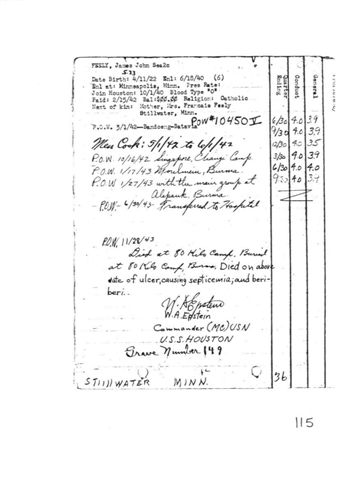 FEELY, James John Sea2c
Date Birth: 4/11/22 Enl: 6/18/40 (6)
Enl at: Minneapolis, Minn. Pres Rate:
Join Houston: 10/1/40 Blood Type "O"
Paid: 2/15/42 Bal: Religion: Catholic
Next of kin: Mother, Mrs. Francais Feely
Stillwater, Minn.
POW #10450 V
P.O.W. 3/1/42--Bandoeng-Batavia
Mess Cook: 5/1/42 to 6/1/42
P.O.W. 10/16/42 Singapore, Changi Camp
P.O.W. 1/17/43 Moulmein, Burma.
P.O.W 1/27/43 with the main group at
Alepauk, Burma
P.O.W.- 6/30/43- Transferred to Hospital
P.O.W. 11/28/43
Died at 80 Kilo Camp, Buried
at 80 Kilo Camp, Burma. Died on above
date of ulcer,causing septicemia;and beri-
beri..
W.A. Epstein
W.A. Epstein
Commander (MC) USN
U.S.S. HOUSTON
Grave Number 149
STIIIWATER MINN.
Quarter Ending Conduct General
6/30 4.0 3.9
9/30 4.0 3.9
4.0 3.5
4.0 3.9
6/30 4.0 4.0
4.0
36
115